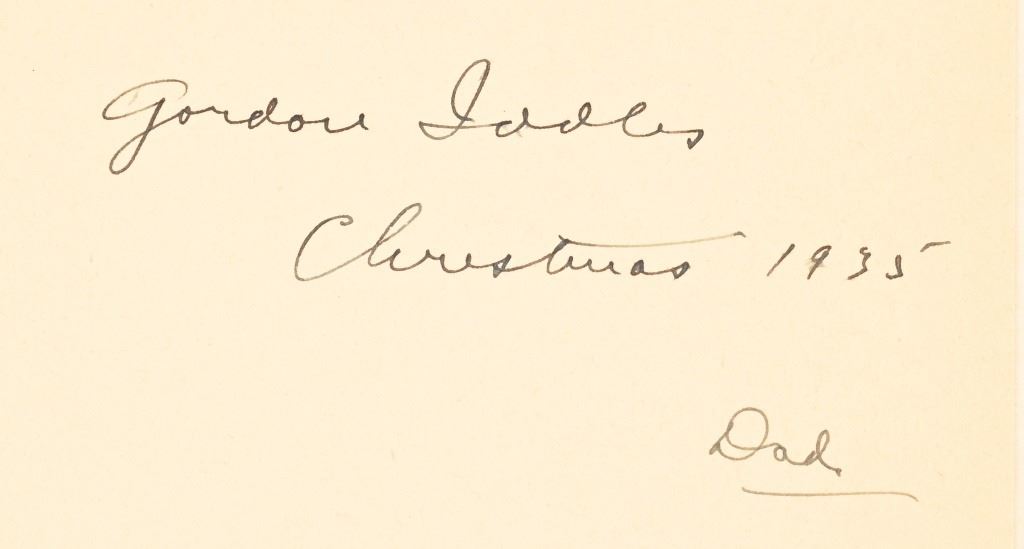 Gordon Iddles
Christmas 1935
Dad.